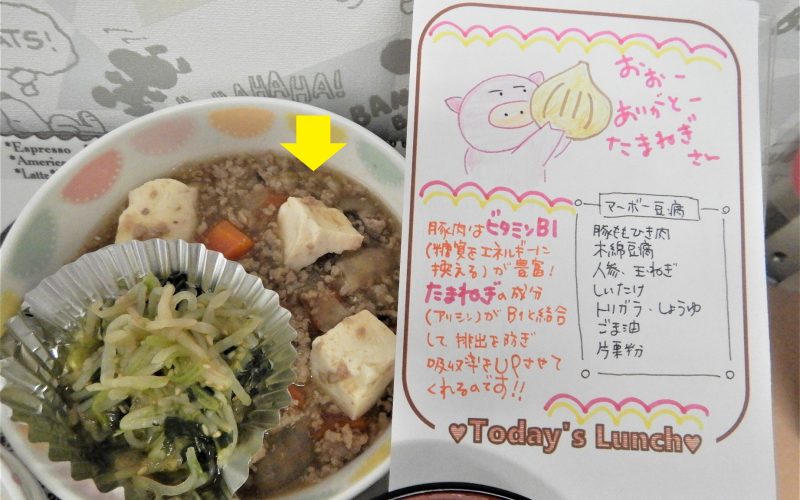 ATS!
HAHAHA!
BAN
*Espresso
*Americ
*Latte
おぉー
ありがとー
たまねぎ
さん
豚肉はビタミンB1
(糖質をエネルギーに
換える)が豊富!
たまねぎの成分
(アリシン)がB1と結合
して排出を防ぎ
吸収率をUPさせて
くれるのです!!
マーボー豆腐
豚ももひき肉
木綿豆腐
人参、玉ねぎ
しいたけ
トリガラ・しょうゆ
ごま油
片栗粉
♥Today's Lunch♥